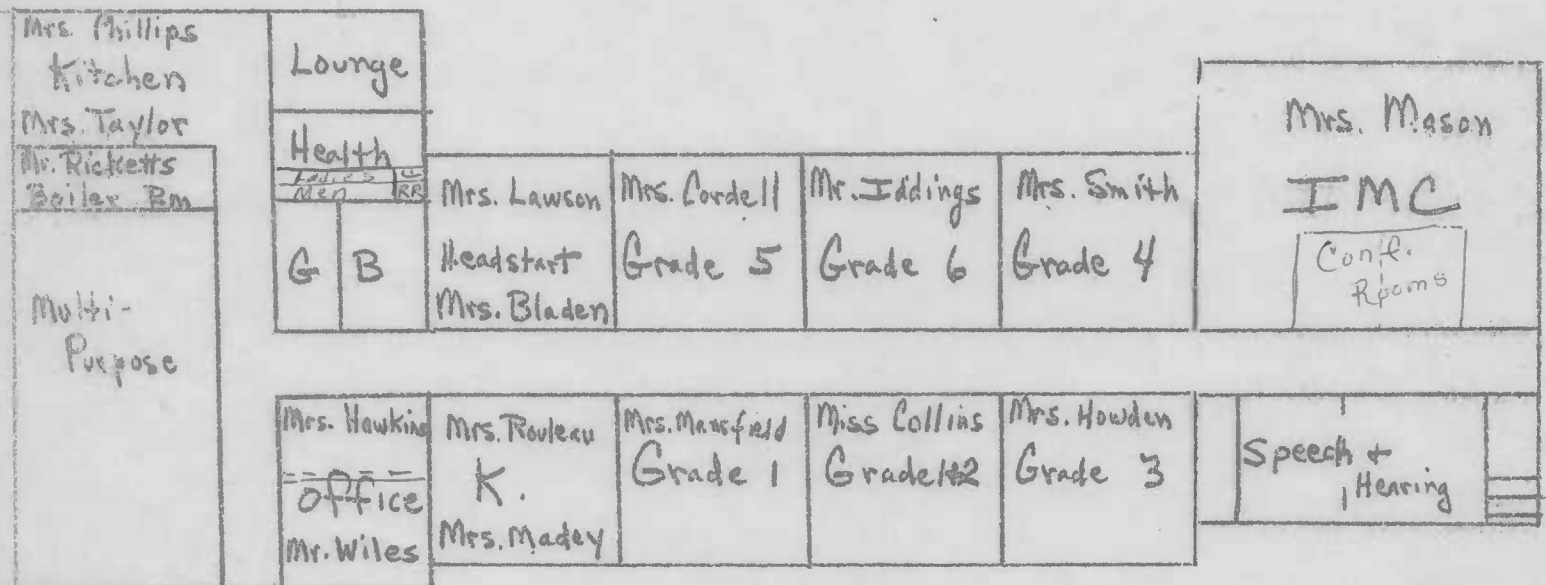 Mrs. Phillips
Kitchen
Mrs. Taylor
Mr. Ricketts
Boiler Rm
Multi-
Purpose
Lounge
Health
Ladies
Men
RR
G
B
Mrs. Lawson
Headstart
Mrs. Bladen
Mrs. Cordell
Grade 5
Mr. Iddings
Grade 6
Mrs. Smith
Grade 4
Mrs. Mason
IMC
Conf.
Rooms
Mrs. Hawkins
Office
Mr. Wiles
Mrs. Rouleau
K.
Mrs. Madey
Mrs. Mansfield
Grade 1
Miss Collins
Grade 1+2
Mrs. Howden
Grade 3
Speech +
Hearing